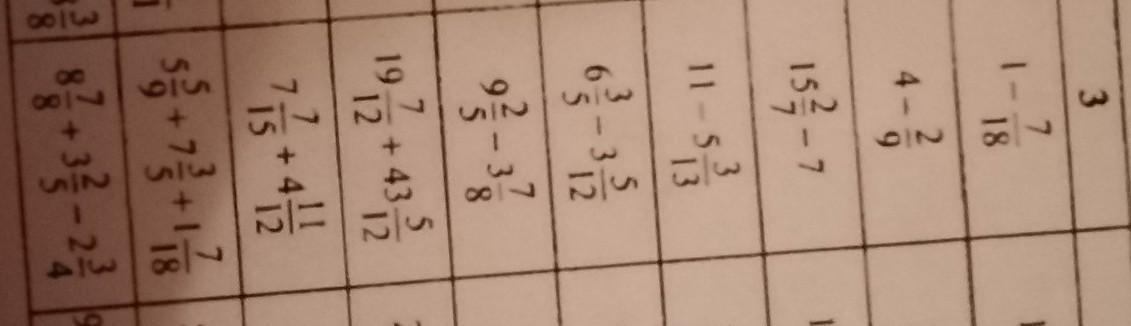 3
1 - 7/18
4 - 2/9
15 2/7 - 7
11 - 5 3/13
6 3/5 - 3 5/12
9 2/5 - 3 7/8
19 7/12 + 43 5/12
7 7/15 + 4 11/12
5 5/9 + 7 3/5 + 1 7/18
8 7/8 + 3 2/5 - 2 3/4